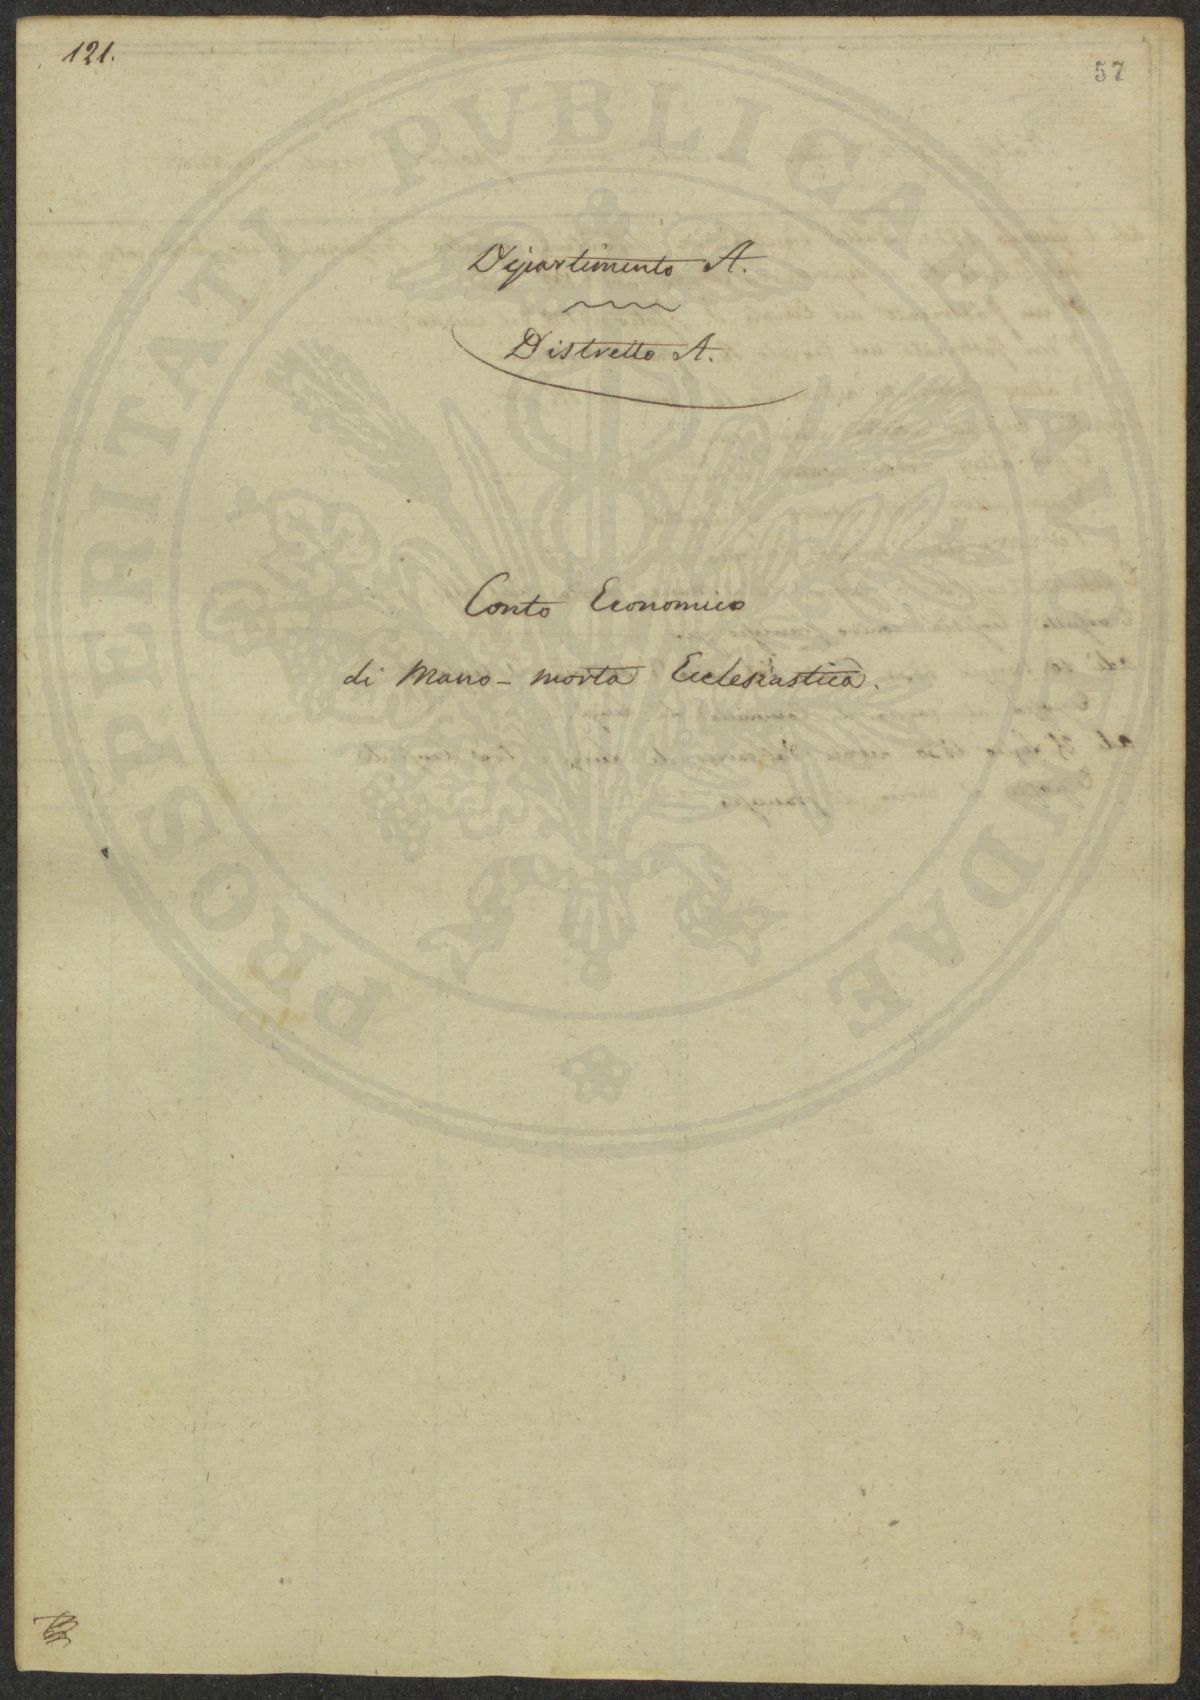 121.
57
Dipartimento A.
Distretto A.
Conto Economico
di Mano-morta Ecclesiastica.
PROSPERITATI PVBLICAE AVGENDAE